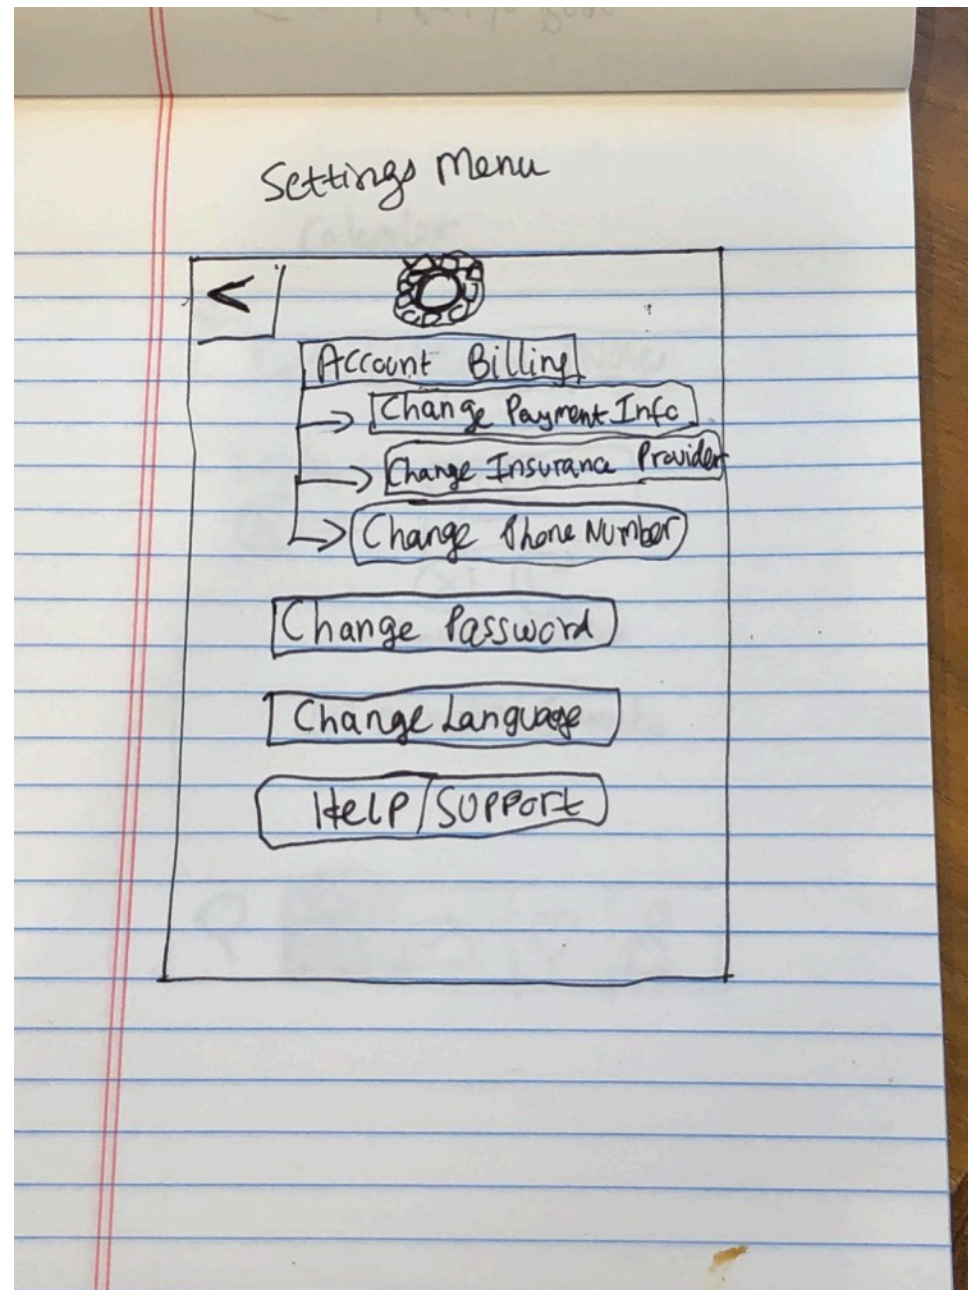 Settings Menu
<
Account Billing
Change Payment Info
Change Insurance Provider
Change Phone Number
Change Password
Change Language
Help/Support